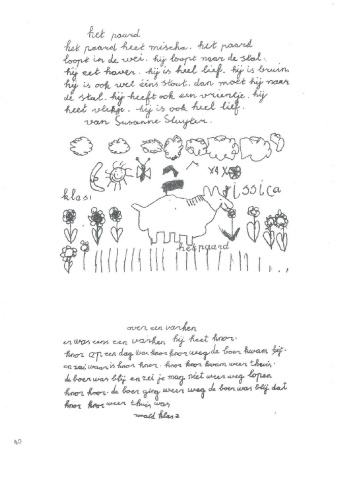 het paard
het paard heet mischa. het paard
loopt in de wei. hij loopt naar de stal.
hij eet haver. hij is heel lief. hij is bruin.
hij is ook wel eens stout. dan moet hij naar
de stal. hij heeft ook een vriendje. hij
heet vlekje. hij is ook heel lief.
van Susanne Sluyter.
klas 1
missica
het paard
over een varken
er was eens een varken hij heet knor.
knor op een dag was knor knor weg de boer kwam
en zei waar is knor knor. knor knor kwam weer thuis.
de boer was blij en zei je mag niet weer weg lopen
knor knor. de boer ging weer weg de boer was blij dat
knor knor weer thuis was
klas 2
40